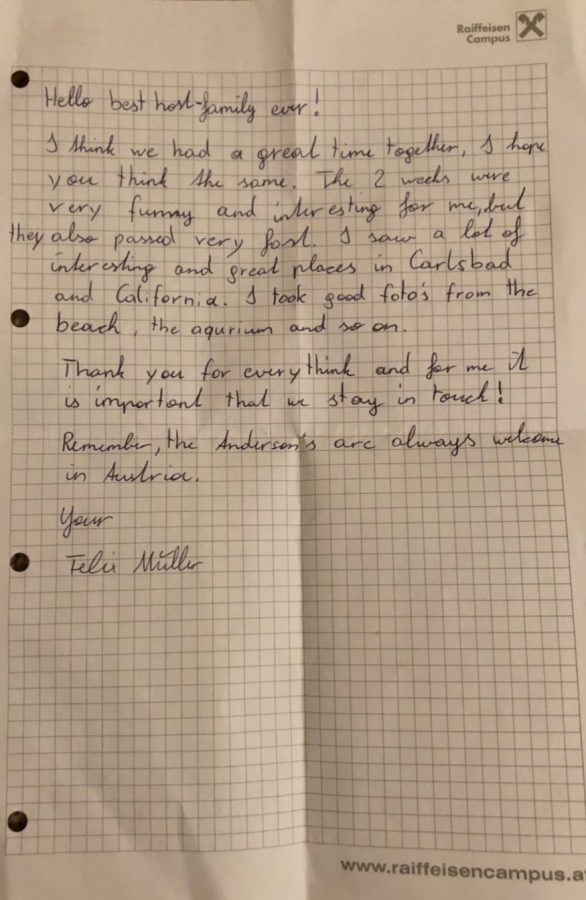 Raiffeisen
Campus
Hello best host-family ever!
I think we had a great time together, I hope
you think the same. The 2 weeks were
very funny and interesting for me, but
they also passed very fast. I saw a lot of
interesting and great places in Carlsbad
and California. I took good foto's from the
beach, the aqurium and so on.
Thank you for everythink and for me it
is important that we stay in touch!
Remember, the Anderson's are always welcome
in Austria.
Your
Felix Müller
www.raiffeisencampus.at